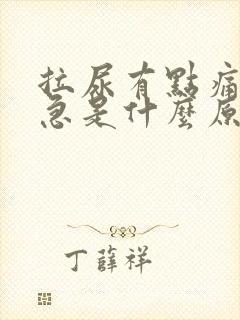 拉尿有點痛
急是什麼原
丁薛祥